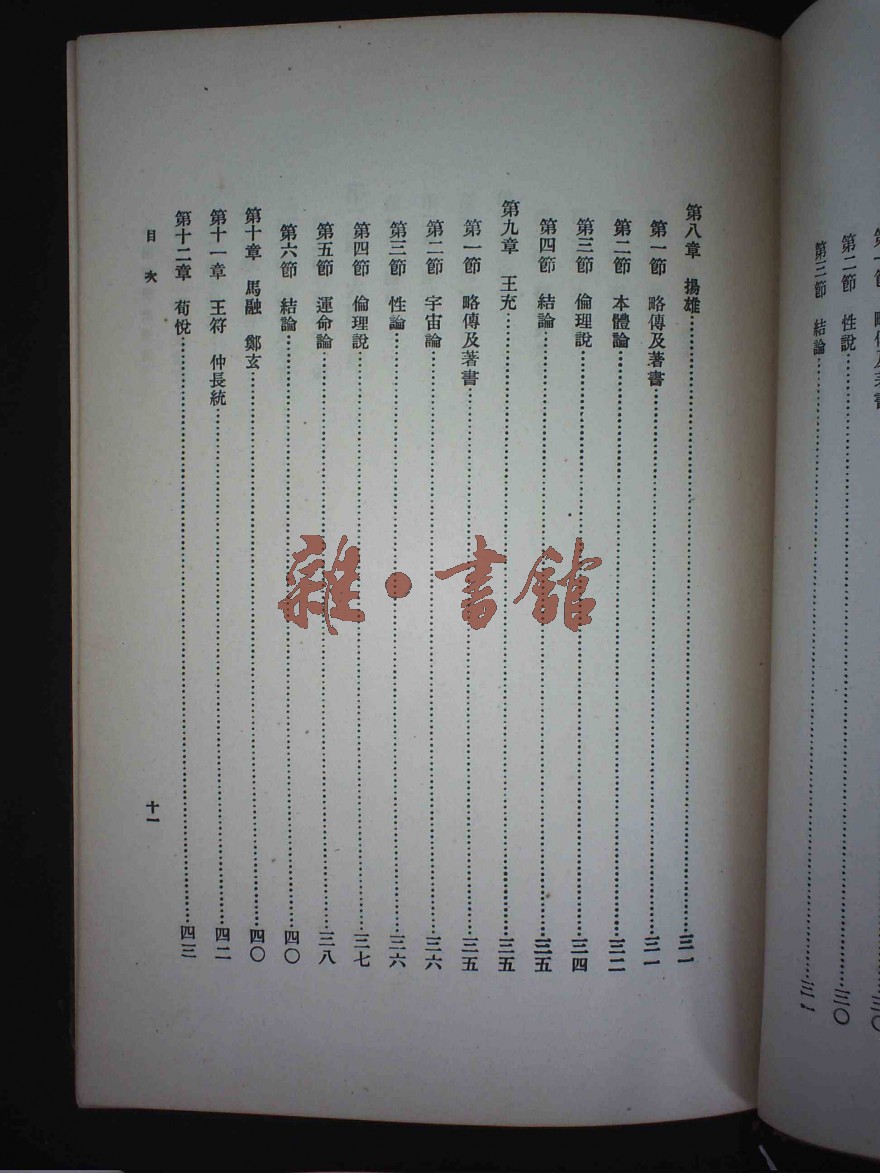 第一節 略傳及著書……三〇
第二節 性說……三〇
第三節 結論……三一
第八章 揚雄……三一
第一節 略傳及著書……三一
第二節 本體論……三二
第三節 倫理說……三四
第四節 結論……三五
第九章 王充……三五
第一節 略傳及著書……三五
第二節 宇宙論……三六
第三節 性論……三六
第四節 倫理說……三七
第五節 運命論……三八
第六節 結論……四〇
第十章 馬融 鄭玄……四〇
第十一章 王符 仲長統……四二
第十二章 荀悅……四三
目次
十一
雜·書館